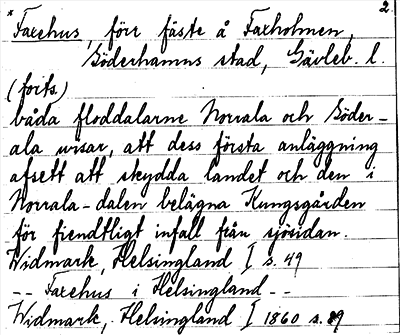 2.
* Faxehus, förr fäste å Faxholmen,
Söderhamns stad, Gävleb. l.
(forts)
båda floddalarne Norrala och Söder-
ala visar, att dess första anläggning
afsett att skydda landet och den i
Norrala-dalen belägna Kungsgården
för fiendtligt infall från sjösidan.
Widmark, Helsingland I s. 49
-- Faxehus i Helsingland --
Widmark, Helsingland I 1860 s. 89